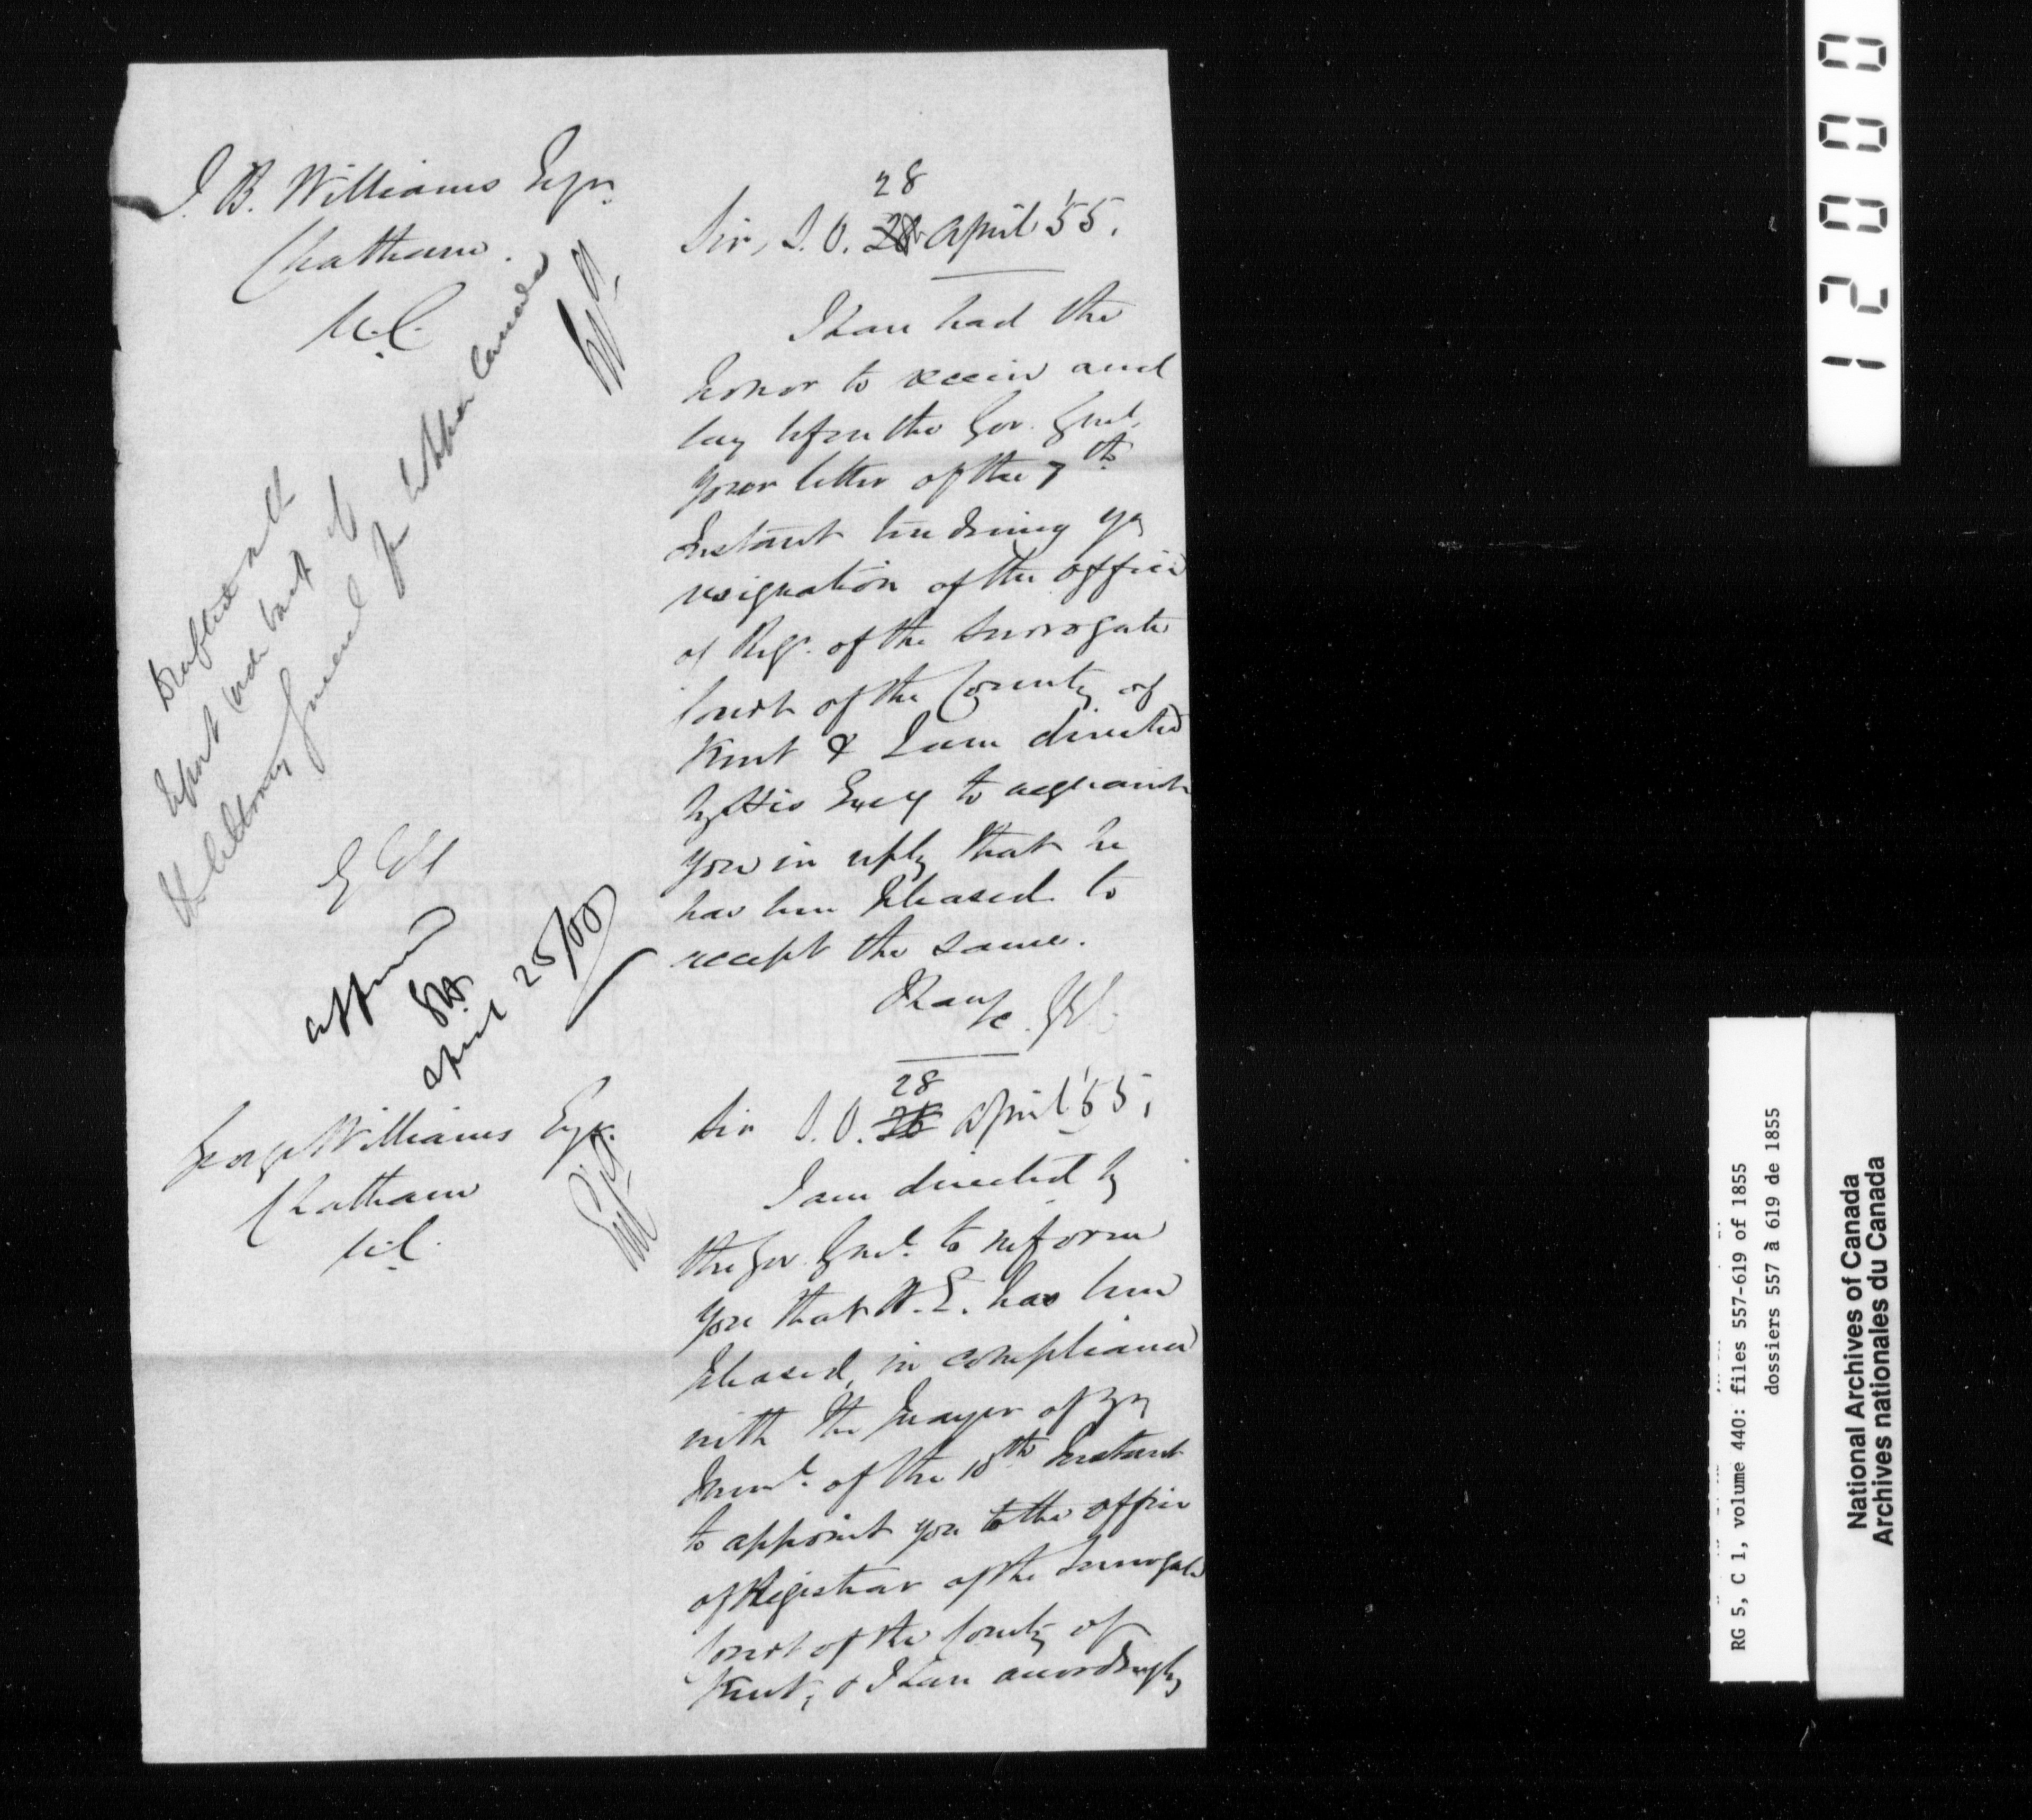 J. B. Williams Esqr.
Chatham.
U.C.
28
Sir, S.O. 28 April '55.
I have had the
honor to receive and
lay before the Gov. Genl.
your letter of the 7th
Instant tendering yr
resignation of the office
of Regr. of the Surrogate
Court of the County of
Kent & I am directed
by His Excy to acquaint
you in reply that he
has been pleased to
accept the same.
I have
&c.
Drafted
Report
Attorney General for Upper Canada
approved
April 25/55
George Williams Esqr.
Chatham
U.C.
28
Sir S.O. 26 April '55,
I am directed by
the Gov. Genl. to inform
you that H.E. has been
pleased, in compliance
with the prayer of yr
Meml. of the 10th Instant
to appoint you to the office
of Registrar of the Surrogate
Court of the County of
Kent, & I have accordingly
12000
RG 5, C 1, volume 440: files 557-619 of 1855
dossiers 557 à 619 de 1855
National Archives of Canada
Archives nationales du Canada